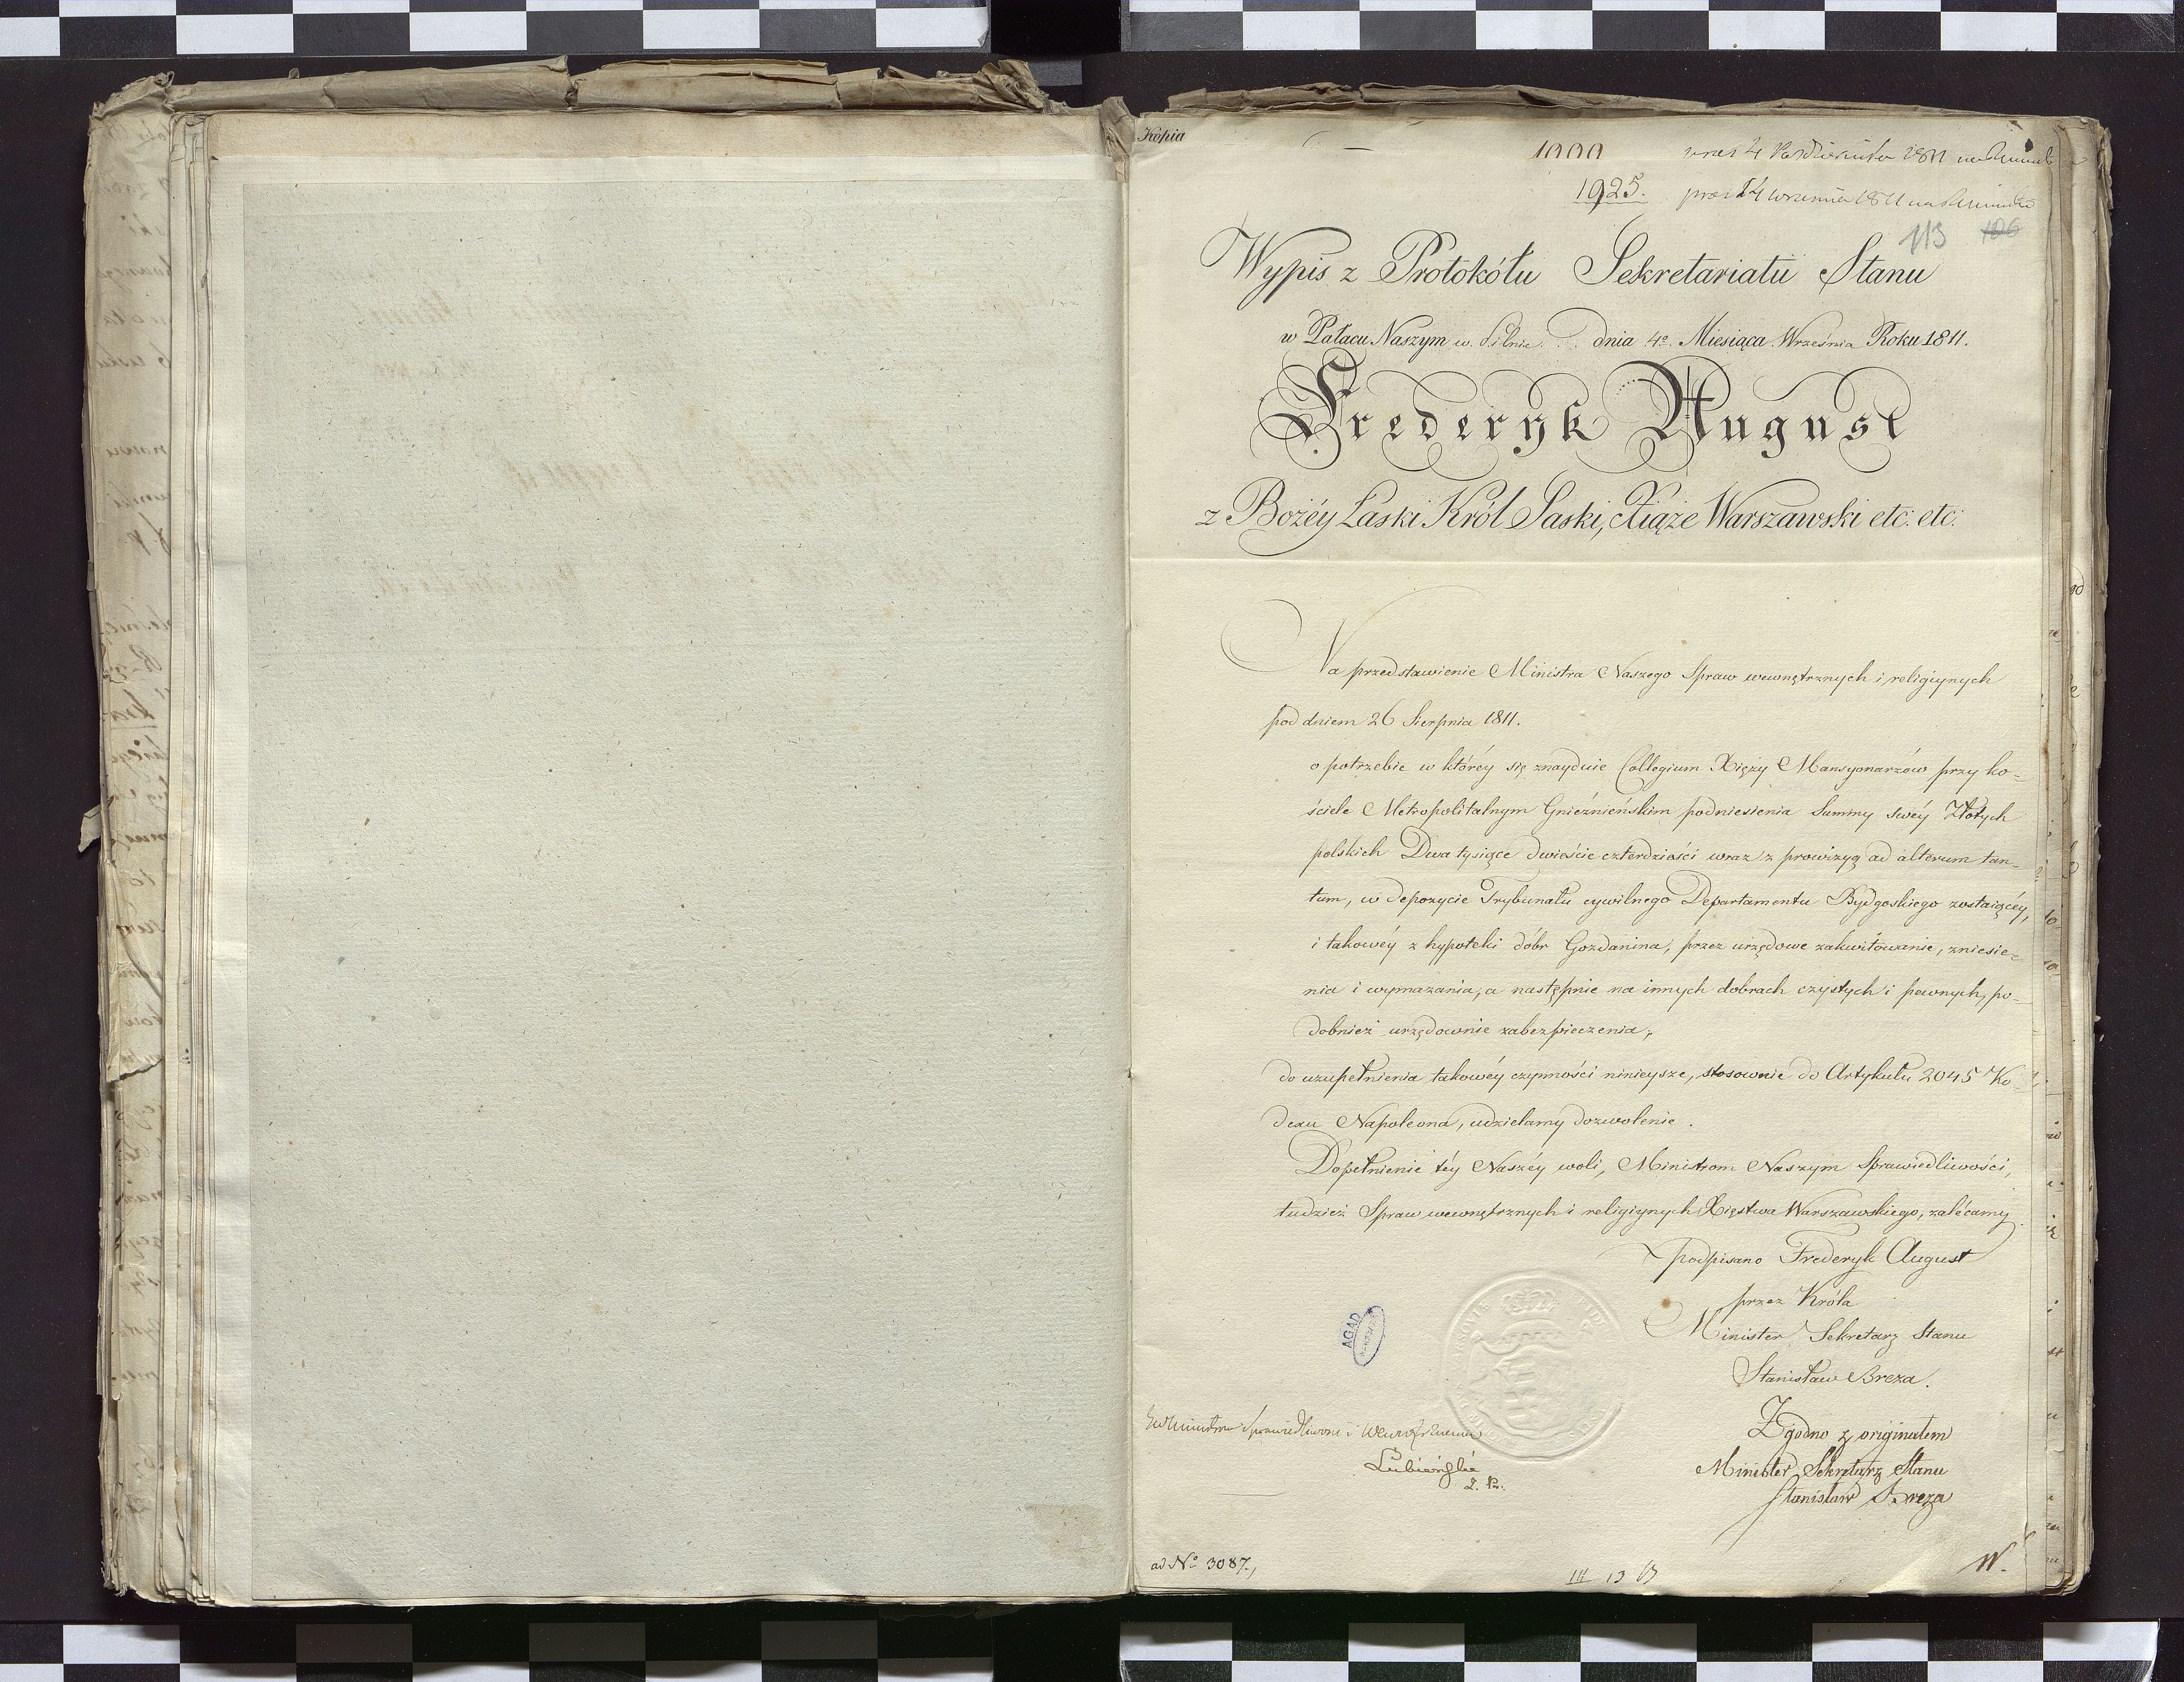 Kopia
1000
4 Października 1811
1925. 14 września 1811
113 106
Wypis z Protokółu Sekretariatu Stanu
w Pałacu Naszym w Pilnic dnia 4º Miesiąca Września Roku 1811.
Frederyk August
z Bożéy Łaski Król Saski, Xiąże Warszawski etc: etc:
Na przedstawienie Ministra Naszego Spraw wewnętrznych i religiynych
pod dniem 26 Sierpnia 1811.
o potrzebie w któréy się znayduie Collegium Xięży Mansyonarzów przy ko-
ściele Metropolitalnym Gnieźnieńskim podniesienia Summy swéy Złotych
polskich Dwa tysiące dwieście czterdzieści wraz z prowizyą ad alterum tan-
tum, w depozycie Trybunału cywilnego Departamentu Bydgoskiego zostaiącéy,
i takowéy z hypoteki dóbr Gozdanina, przez urzędowe zakwitowanie, zniesie-
nia i wymazania, a następnie na innych dobrach czystych i pewnych, po-
dobnież urzędownie zabezpieczenia;
do uzupełnienia takowéy czynności ninieysze, stosownie do Artykułu 2045 Ko-
dexu Napoleona, udzielamy dozwolenie.
Dopełnienie téy Naszéy woli, Ministrom Naszym Sprawiedliwości,
tudzież Spraw wewnętrznych i religiynych Xięstwa Warszawskiego, zalécamy
podpisano Frederyk August
przez Króla
Minister Sekretarz Stanu
Stanisław Breza.
AGAD
Zgodno z originałem
Minister Sekretarz Stanu
Stanisław Breza
Łubieński
ad Nº 3087.,
III 13 13
W.